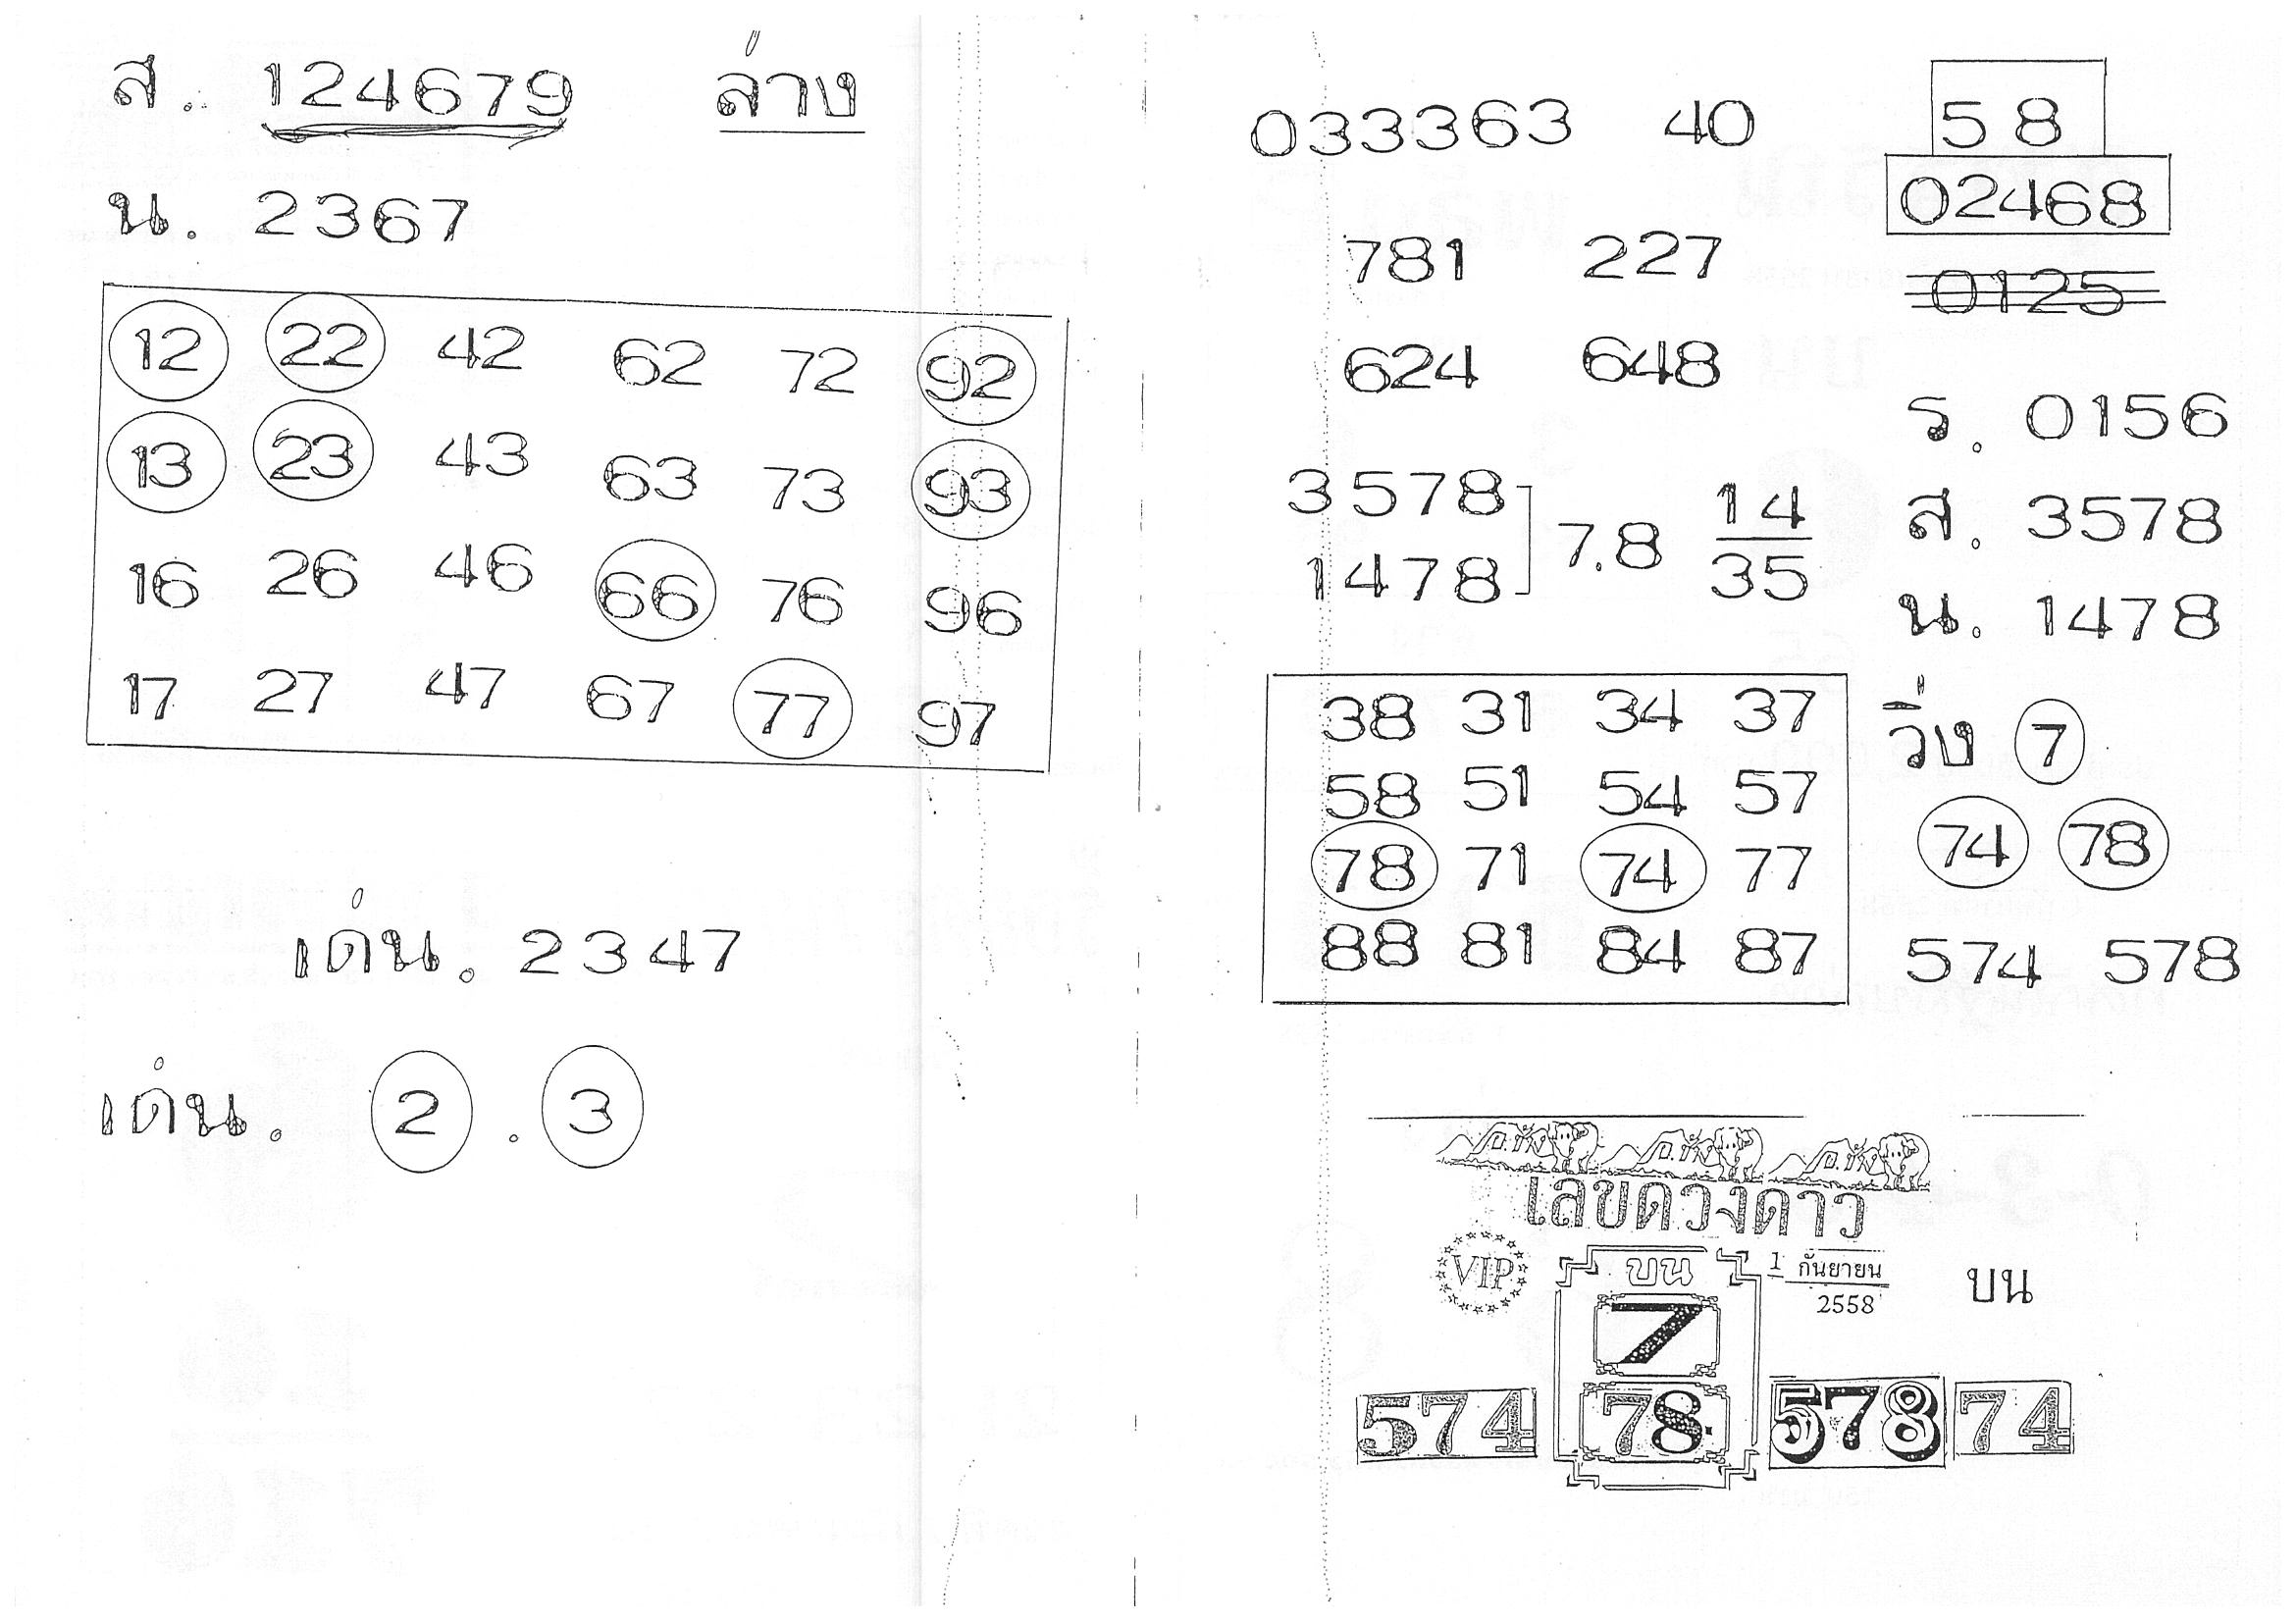 ส. 124679 ล่าง
น. 2367
12 22 42 62 72 92
13 23 43 63 73 93
16 26 46 66 76 96
17 27 47 67 77 97
เด่น. 2347
เด่น. 2 . 3
033363 40 58
02468
781 227 0125
624 648
ร. 0156
3578 ส. 3578
7.8 14
1478 35
น. 1478
38 31 34 37
58 51 54 57
78 71 74 77
88 81 84 87
วิ่ง 7
74 78
574 578
เลขดวงดาว
VIP บน 1 กันยายน บน
2558
7
574 78 578 74